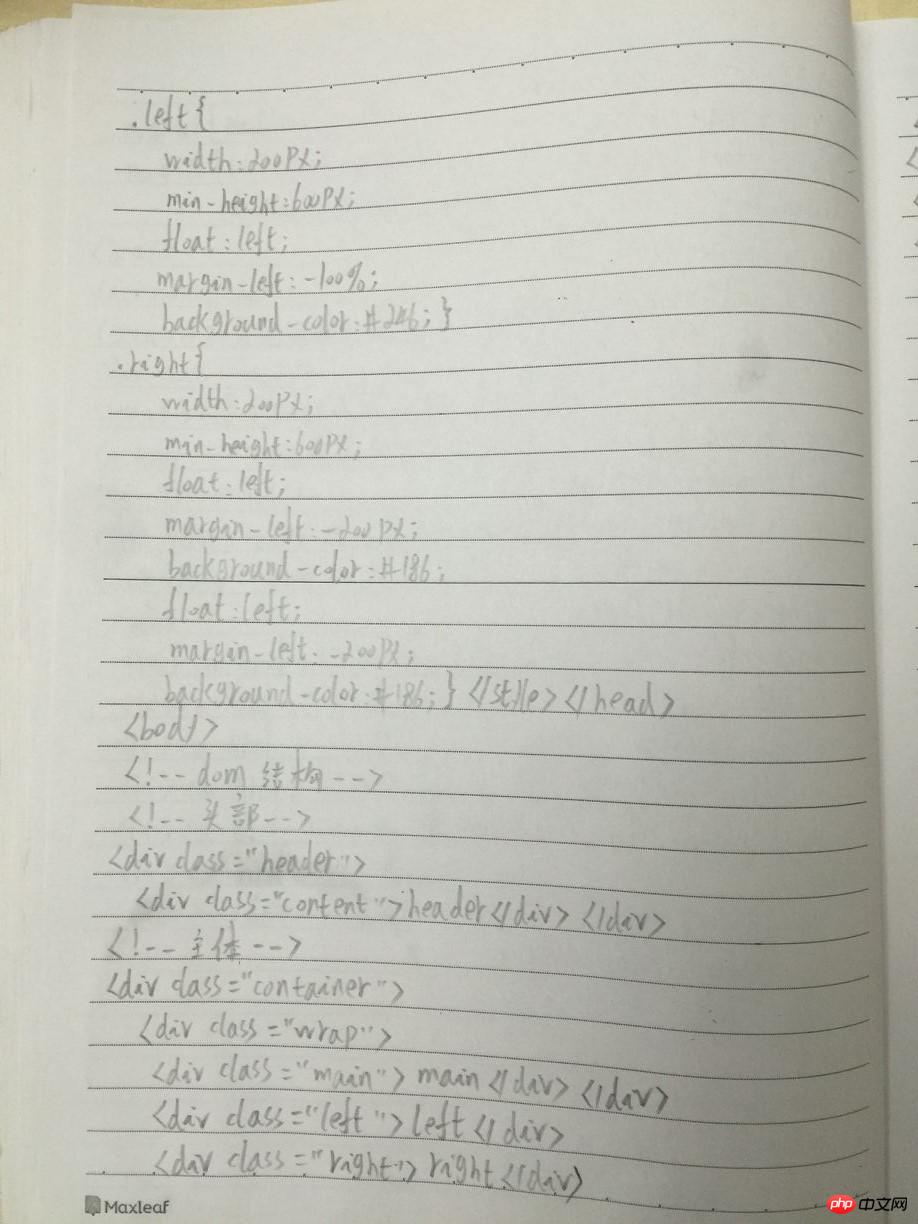 .left{
width:200px;
min-height:600px;
float:left;
margin-left:-100%;
background-color:#246;}
.right{
width:200px;
min-height:600px;
float:left;
margin-left:-200px;
background-color:#186;
float:left;
margin-left:-200px;
background-color:#186;}</style></head>
<body>
<!-- dom 结构-->
<!-- 头部-->
<div class="header">
<div class="content">header</div></div>
<!-- 主体-->
<div class="container">
<div class="wrap">
<div class="main">main</div></div>
<div class="left">left</div>
<div class="right">right</div>
Maxleaf
php 中文网